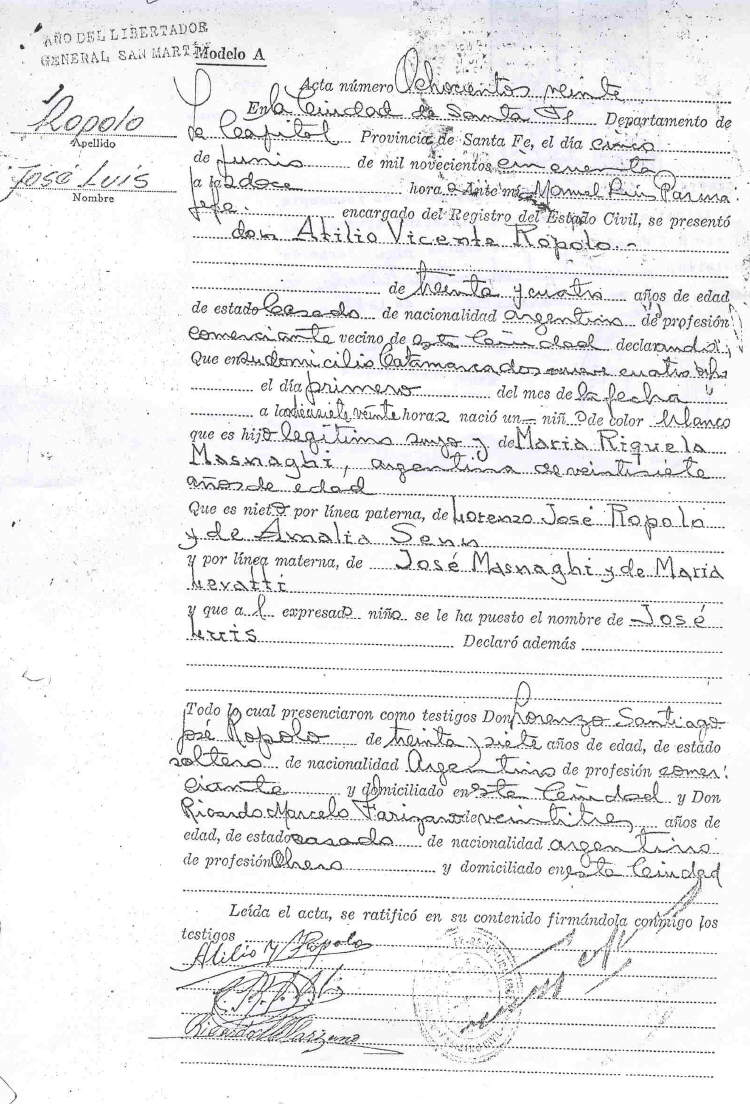 AÑO DEL LIBERTADOR
GENERAL SAN MARTÍN
Modelo A
Ropolo
Apellido
José Luis
Nombre
Acta número Ochocientos veinte
En la Ciudad de Santa Fe Departamento de
la Capital Provincia de Santa Fe, el día cinco
de Junio de mil novecientos cincuenta
a las doce horas Ante mí, Manuel Luis
Jefe. encargado del Registro del Estado Civil, se presentó
don Atilio Vicente Ropolo.-
de treinta y cuatro años de edad
de estado Casado de nacionalidad argentino de profesión
comerciante vecino de esta Ciudad declarando:
Que en su domicilio Catamarca dos nueve cuatro ocho
el día primero del mes de la fecha
a las diecisiete veinte horas nació un niño de color blanco
que es hijo legítimo suyo y de María Riquela
Masnaghi, argentina de veintisiete
años de edad
Que es nieto por línea paterna, de Lorenzo José Ropolo
y de Amalia Senn
y por línea materna, de José Masnaghi y de María
Levatti
y que a l expresado niño se le ha puesto el nombre de José
Luis Declaró además
Todo lo cual presenciaron como testigos Don Lorenzo Santiago
José Ropolo de treinta y siete años de edad, de estado
soltero de nacionalidad Argentino de profesión comer-
ciante y domiciliado en esta Ciudad y Don
Ricardo Marcelo Farizano de veintitres años de
edad, de estado casado de nacionalidad argentino
de profesión Obrero y domiciliado en esta Ciudad
Leída el acta, se ratificó en su contenido firmándola conmigo los
testigos
Atilio V Ropolo
Ricardo M Farizano